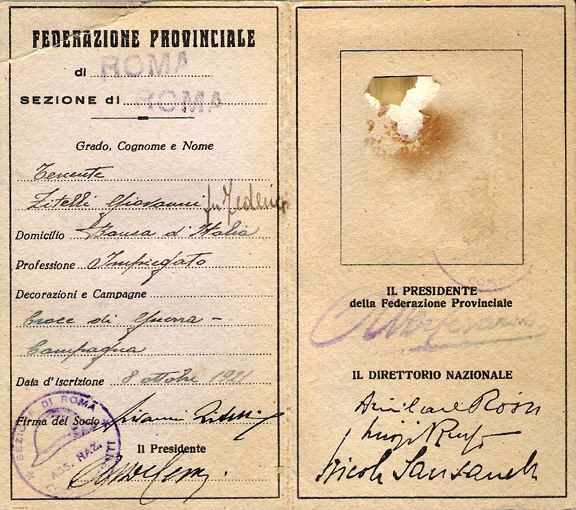 FEDERAZIONE PROVINCIALE
di ROMA
SEZIONE di ROMA
Grado, Cognome e Nome
Tenente
Zitelli Giovanni fu Federico
Domicilio Banca d'Italia
Professione Impiegato
Decorazioni e Campagne
Croce di Guerra -
Campagna
Data d'iscrizione 8 ottobre 1921
Firma del Socio
Il Presidente
SEZIONE DI ROMA
ASS. NAZ.
IL PRESIDENTE
della Federazione Provinciale
IL DIRETTORIO NAZIONALE
Amilcare Rossi
Luigi Russo
Nicola Sansanelli